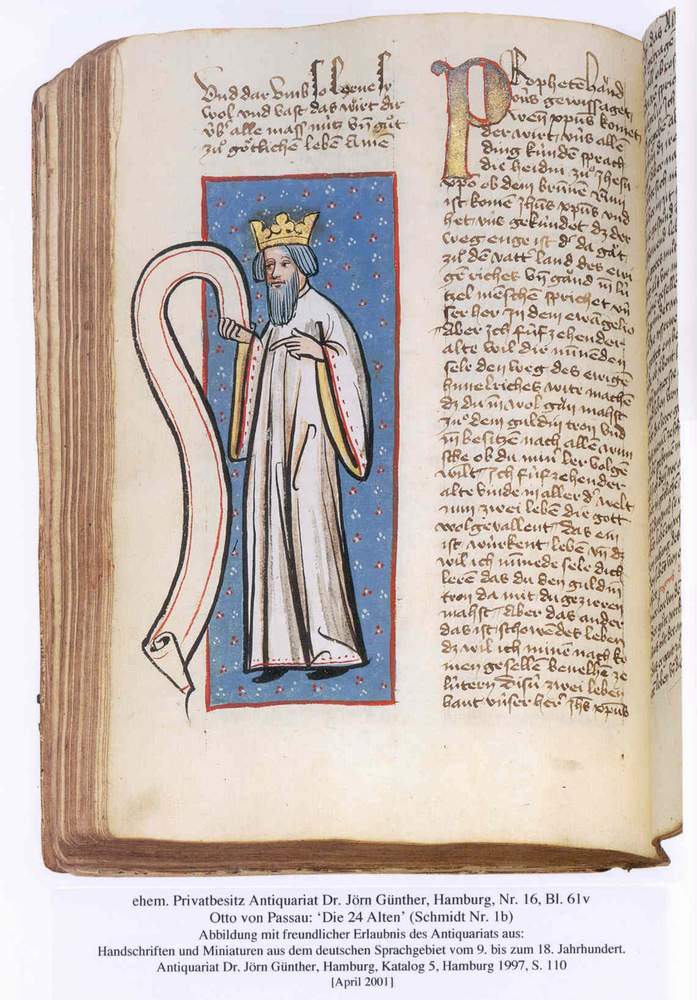 Vnd dar vmb so volgene ir
wol vnd vast das wirt dir
vb' alle mass nütz vn̄ gůt
zů götlichē leben Amē
Prophetē händ
vns gewissaget
wen xp̄us komet
der wirt vns allē
ding künden sprach
die heidnī zů Jhesū
xp̄o ob dem brunnē Nun
ist komē Jhūs xp̄us vnd
het vns gekündet dz der
weg enge ist d' da gāt
zů dē vatt' land des ewi
gē riches vn̄ gand in lü
tzel mēschē sprichet vn
ser her In dem ewāgelio
Aber Ich fünfzehender
alte wil dir minnendē
sele den weg des ewigē
himelriches wite machē
dz du in wol gān mahst
zů dem guldin tron vnd
in besitzen nach allē wun
sche ob du min' ler volgē
wilt Ich fünfzehender
alte vinde in aller d' welt
nun zwei leben die gott
wol gevallent das ein
ist würkent leben vn̄ dz
wil ich minnēde sele dich
leren das du den guldin
tron da mit du gezieren
mahst Aber das ander
das ist schowēdes leben
dz wil ich minen nach ko
men gesellen bevelhē ze
lütern Disū zwei leben
hant vnser her' Jhs xp̄us
ehem. Privatbesitz Antiquariat Dr. Jörn Günther, Hamburg, Nr. 16, Bl. 61v
Otto von Passau: ‘Die 24 Alten’ (Schmidt Nr. 1b)
Abbildung mit freundlicher Erlaubnis des Antiquariats aus:
Handschriften und Miniaturen aus dem deutschen Sprachgebiet vom 9. bis zum 18. Jahrhundert.
Antiquariat Dr. Jörn Günther, Hamburg, Katalog 5, Hamburg 1997, S. 110
[April 2001]